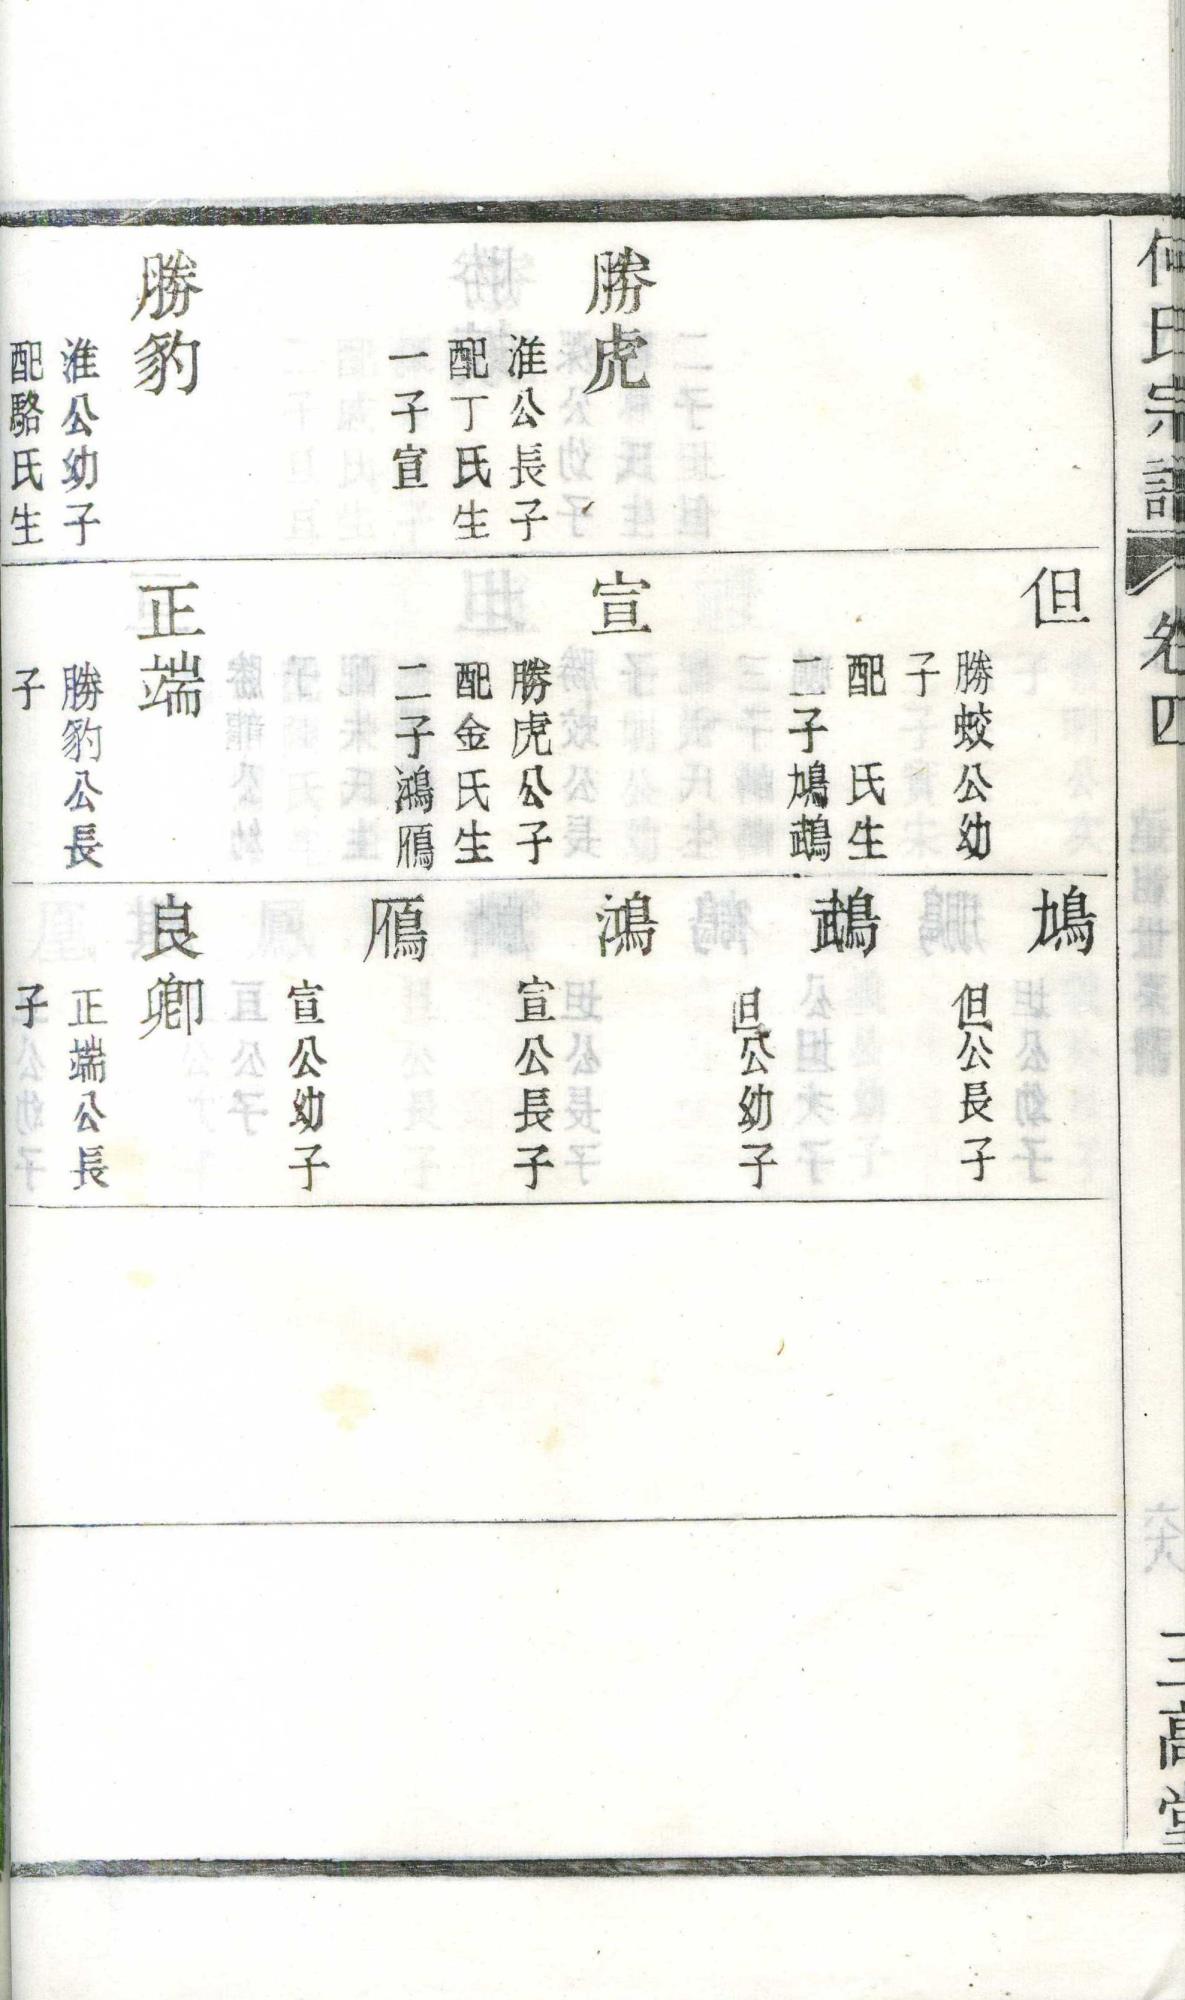 何氏宗譜
卷四
三高堂
勝虎
淮公長子
配丁氏生
一子宣
勝豹
淮公幼子
配駱氏生
但
勝蛟公幼
子
配　氏生
二子鳩鵡
宣
勝虎公子
配金氏生
二子鴻鴈
正端
勝豹公長
子
鳩
但公長子
鵡
但公幼子
鴻
宣公長子
鴈
宣公幼子
良卿
正端公長
子